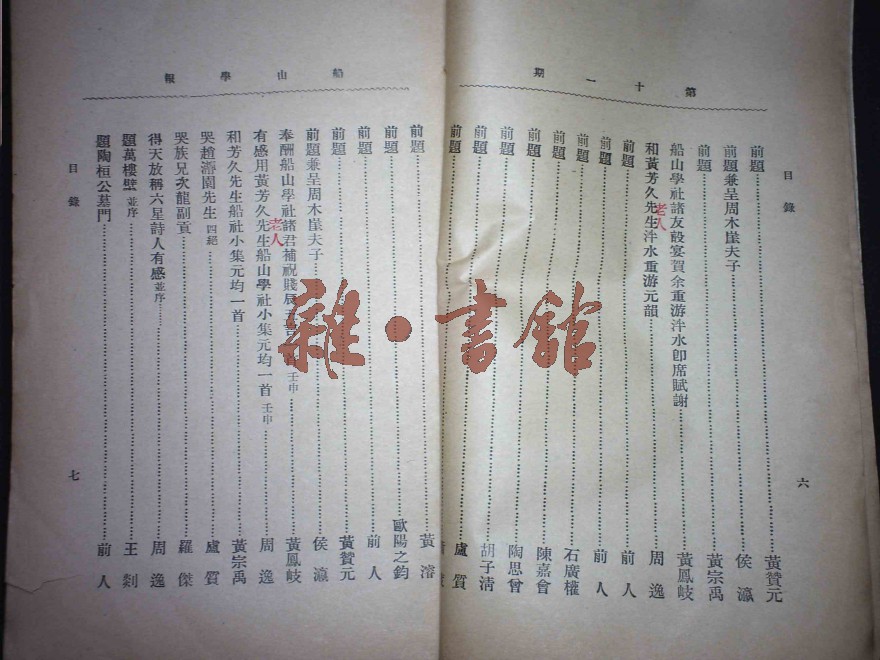 第十一期
目錄
前題 黃贊元
前題兼呈周木崖夫子 侯瀛
前題 黃宗禹
船山學社諸友設宴賀余重游泮水卽席賦謝 黃鳳岐
和黃芳久先生泮水重游元韻 周逸
老人
前題 前人
前題 前人
前題 石廣權
前題 陳嘉會
前題 陶思曾
前題 胡子清
前題 盧質
前題
六
船山學報
前題 黃濬
前題 歐陽之鈞
前題 前人
前題 黃贊元
前題兼呈周木崖夫子 侯瀛
奉酬船山學社諸君補祝賤辰 首 壬申 黃鳳岐
有感用黃芳久先生船山學社小集元均一首 壬申 周逸
老人
和芳久先生船社小集元均一首 黃宗禹
哭趙瀞園先生 四絕 盧質
哭族兄次龍副貢 羅傑
得天放稱六星詩人有感 並序 周逸
題萬樓壁 並序 王剡
題陶桓公墓門 前人
目錄
七
雜·書館